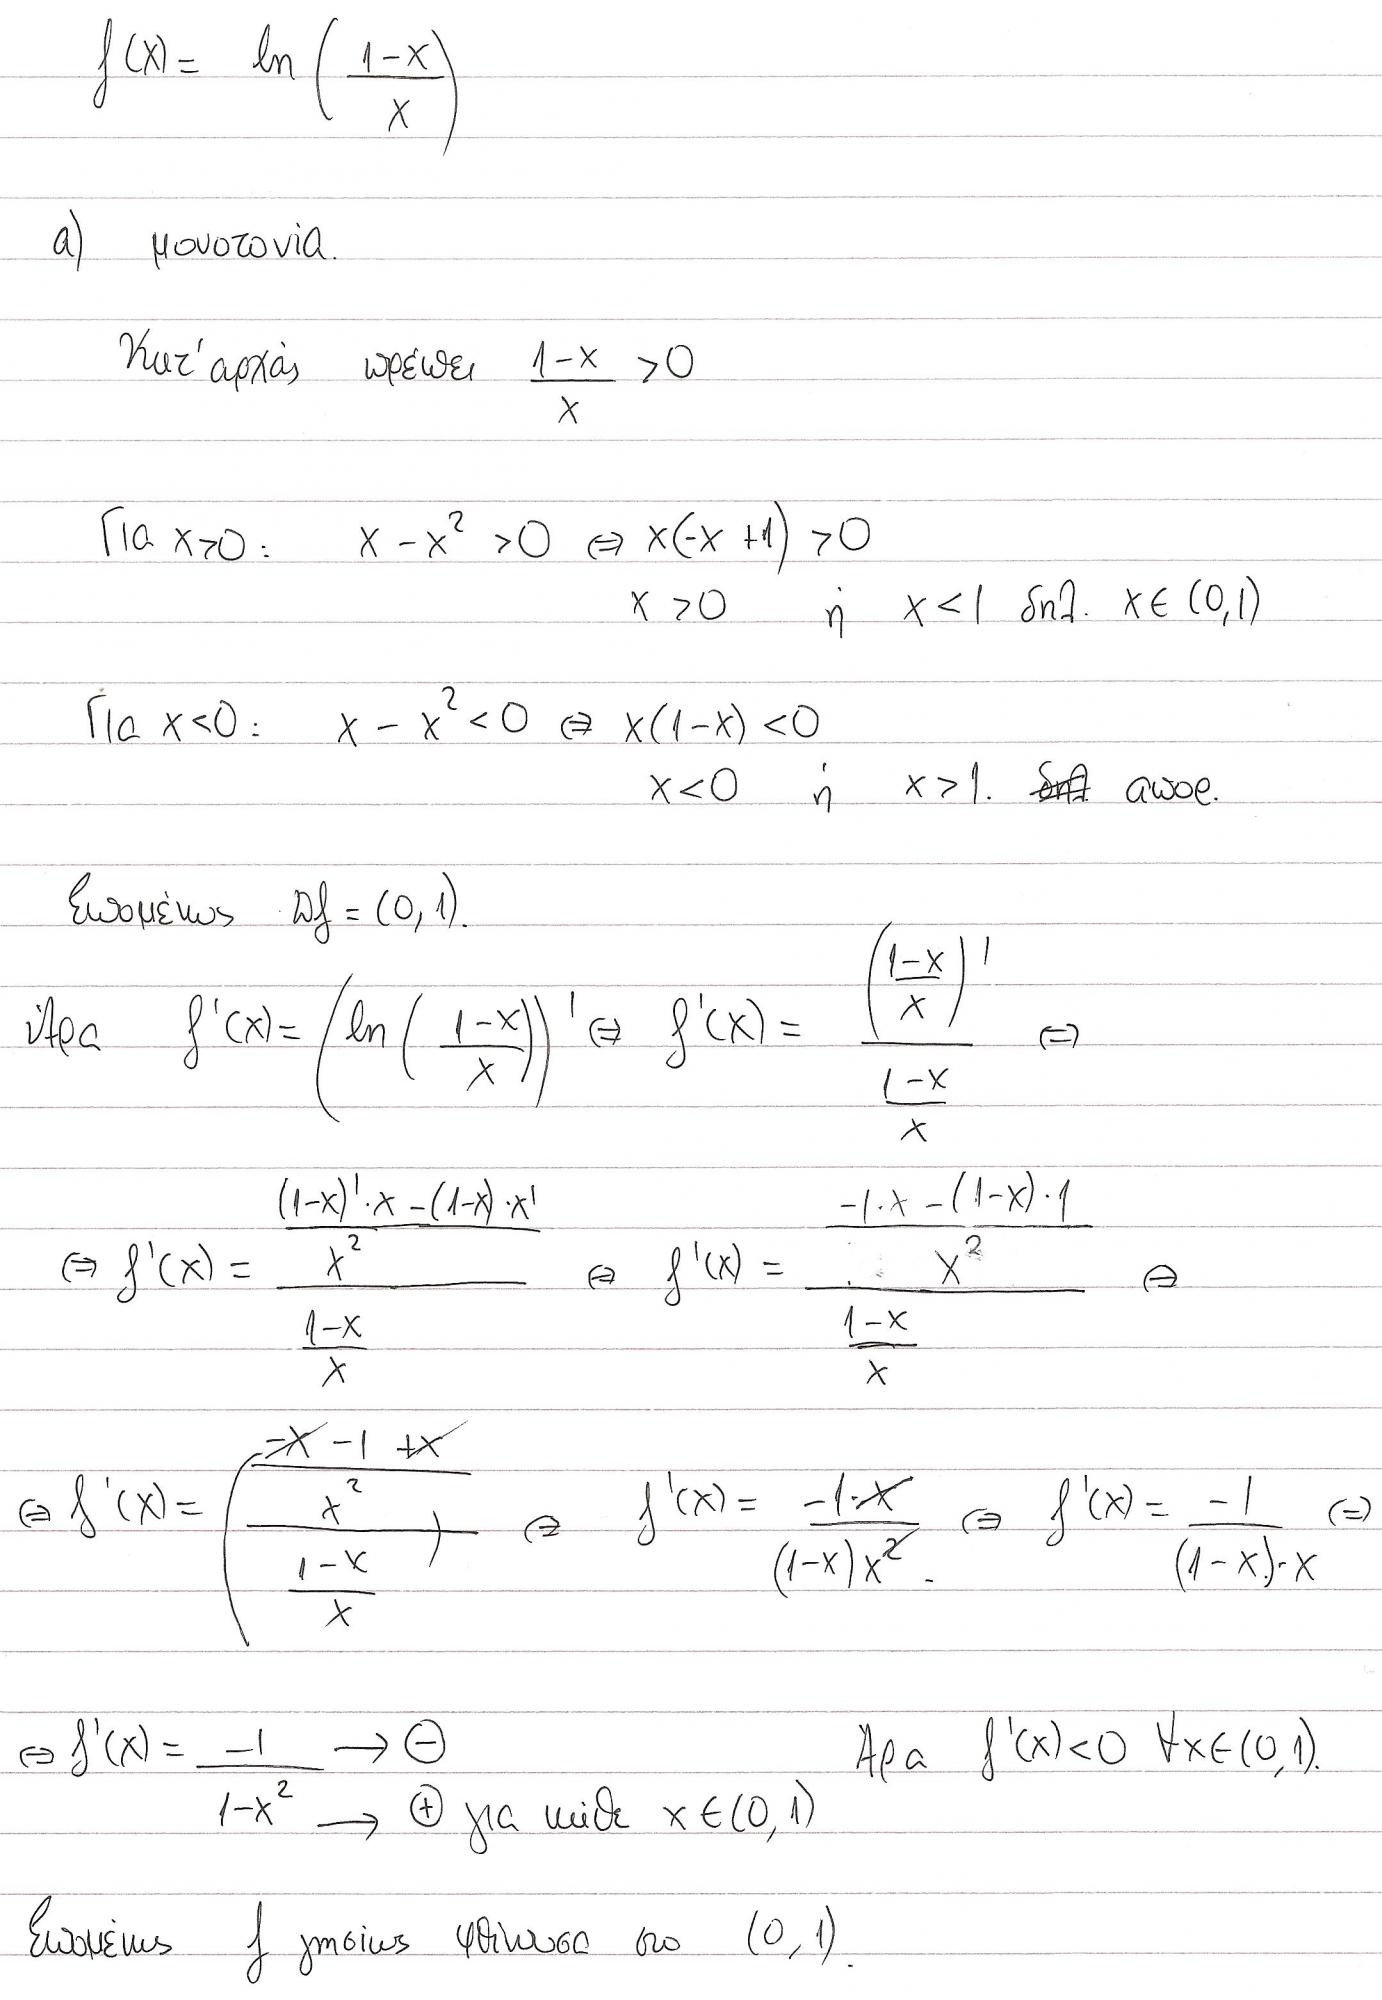 f(x) = ln((1-x)/x)
α) μονοτονία.
Κατ' αρχάς πρέπει (1-x)/x >0
Για x>0: x - x² >0 ⇔ x(-x+1) >0
x >0 ή x<1 δηλ. x ∈ (0,1)
Για x<0: x - x² <0 ⇔ x(1-x) <0
x<0 ή x>1. απορ.
Επομένως Df = (0,1).
Άρα f'(x) = (ln((1-x)/x))' ⇔ f'(x) = ((1-x)/x)' / ((1-x)/x) ⇔
⇔ f'(x) = (((1-x)'·x - (1-x)·x')/x²) / ((1-x)/x) ⇔ f'(x) = ((-1·x - (1-x)·1)/x²) / ((1-x)/x) ⇔
⇔ f'(x) = ((-x -1 +x)/x²) / ((1-x)/x) ⇔ f'(x) = (-1·x)/((1-x)x²). ⇔ f'(x) = -1/((1-x)·x) ⇔
⇔ f'(x) = -1/(1-x²) → ⊖ → ⊕ για κάθε x ∈ (0,1) Άρα f'(x)<0 ∀x∈(0,1).
Επομένως f γνησίως φθίνουσα στο (0,1).